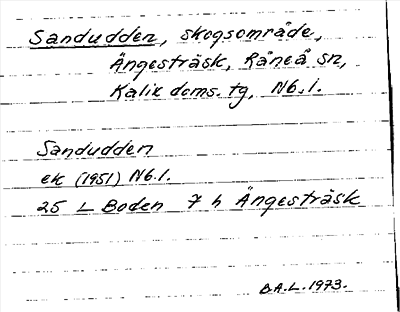 Sandudden, skogsområde,
Ängesträsk, Råneå sn,
Kalix doms. tg, Nb.l.
Sandudden
ek (1951) Nb.l.
25 L Boden 7 h Ängesträsk
B.A.L. 1973.